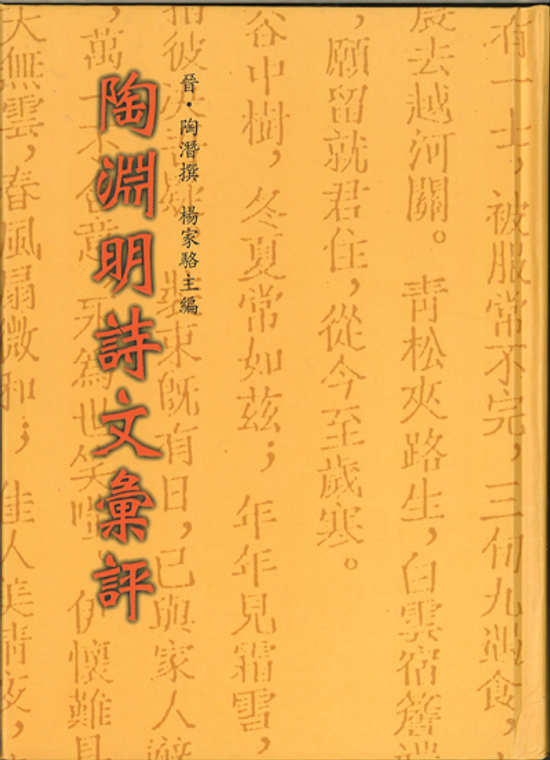 陶淵明詩文彙評
晉・陶潛撰　楊家駱主編
有一士，被服常不完，三旬九遇食，
晨去越河關。青松夾路生，白雲宿簷端
，願留就君住，從今至歲寒。
谷中樹，冬夏常如茲；年年見霜雪，
指彼　裝束既有日，已與家人辭
萬一不合意，永為世笑嗤。伊懷難具
天無雲，春風扇微和；佳人美清夜，